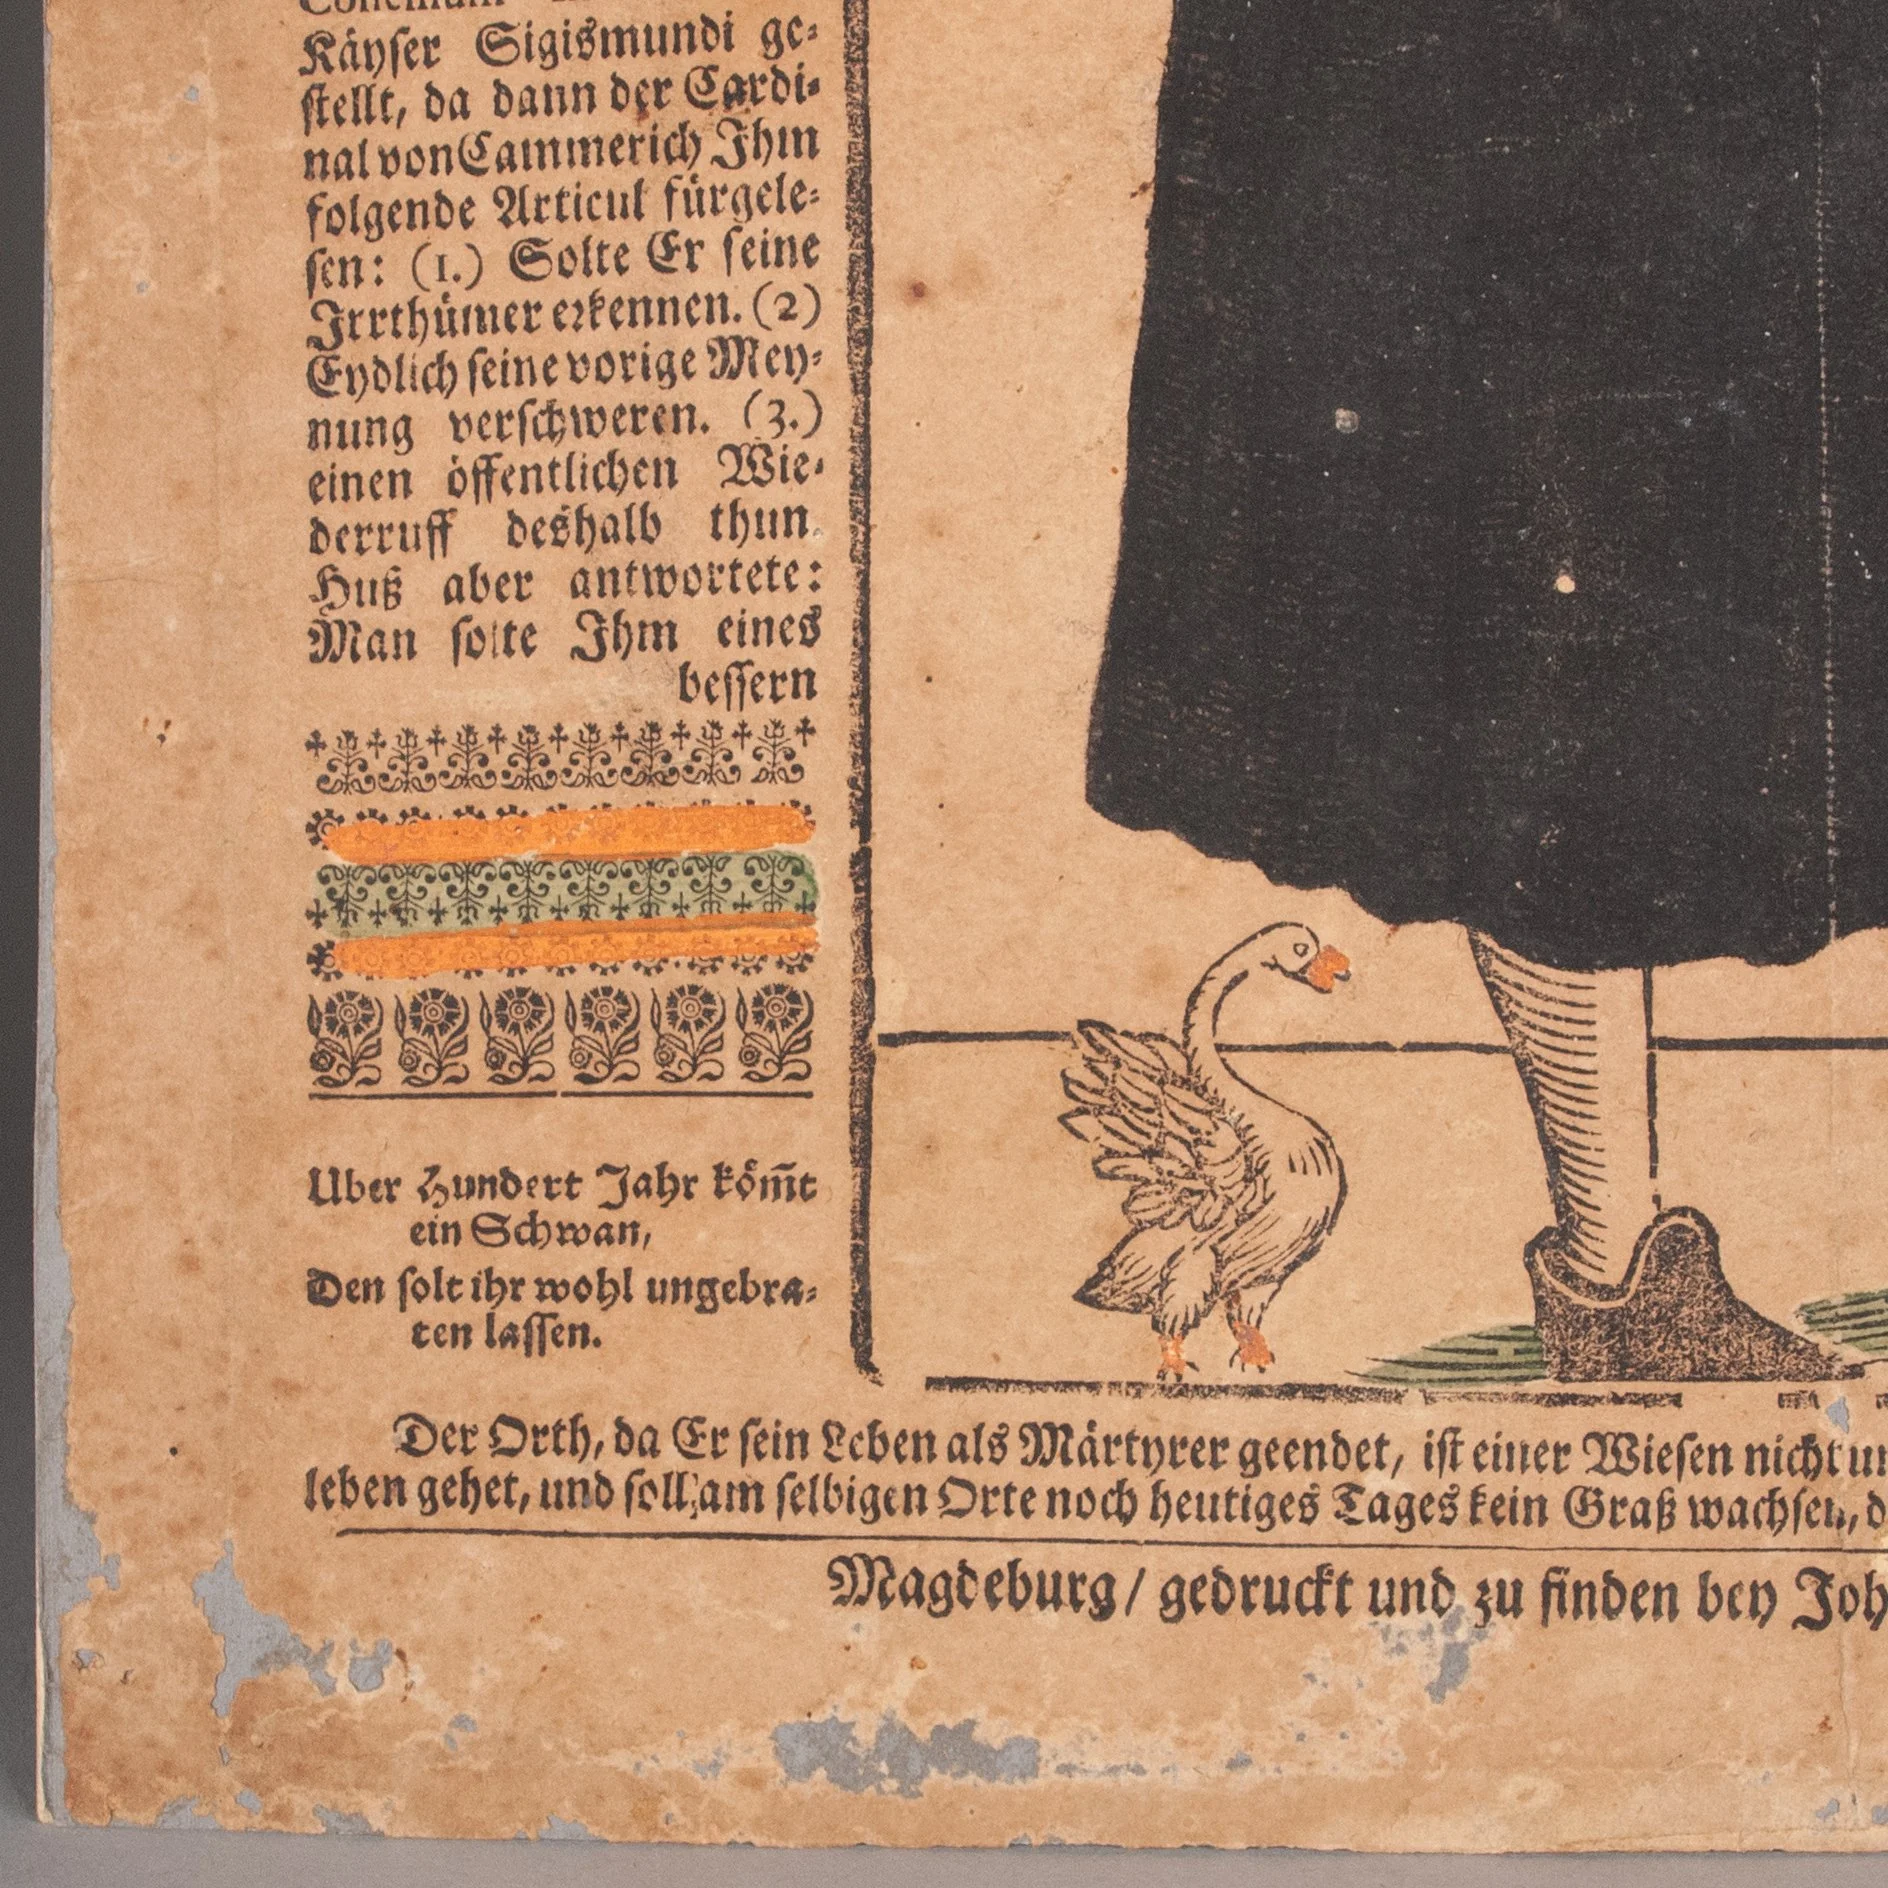 Käyser Sigismundi ge-
stellt, da dann der Cardi-
nal von Cammerich Ihm
folgende Articul fürgele-
sen: (1.) Solte Er seine
Irrthümer erkennen. (2)
Eydlich seine vorige Mey-
nung verschweren. (3.)
einen öffentlichen Wie-
derruff deshalb thun.
Huß aber antwortete:
Man solte Ihm eines
bessern
Uber Hundert Jahr köm̃t
ein Schwan,
Den solt ihr wohl ungebra-
ten lassen.
Der Orth, da Er sein Leben als Märtyrer geendet, ist einer Wiesen nicht
leben gehet, und soll am selbigen Orte noch heutiges Tages kein Graß wachsen,
Magdeburg / gedruckt und zu finden bey Joh